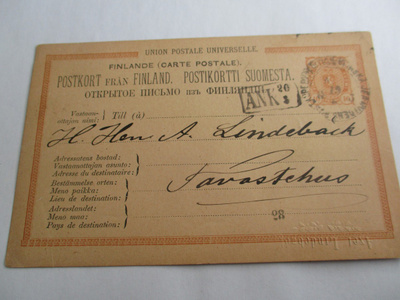 UNION POSTALE UNIVERSELLE.
FINLANDE (CARTE POSTALE).
POSTKORT FRÅN FINLAND. POSTIKORTTI SUOMESTA.
ОТКРЫТОЕ ПИСЬМО изъ ФИНЛЯНДІИ
ANK 20
3
Vastaanottajan nimi: Till (à)
H. Herr A. Lindebäck
Adressatens bostad:
Vastaanottajan asunto:
Adresse du destinataire:
Tavastehus
Bestämmelse orten:
Meno paikka:
Lieu de destination:
Adresslandet:
Meno maa:
Pays de destination:
28